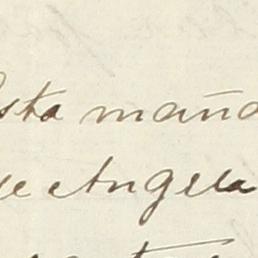 esta mañana
de Angela